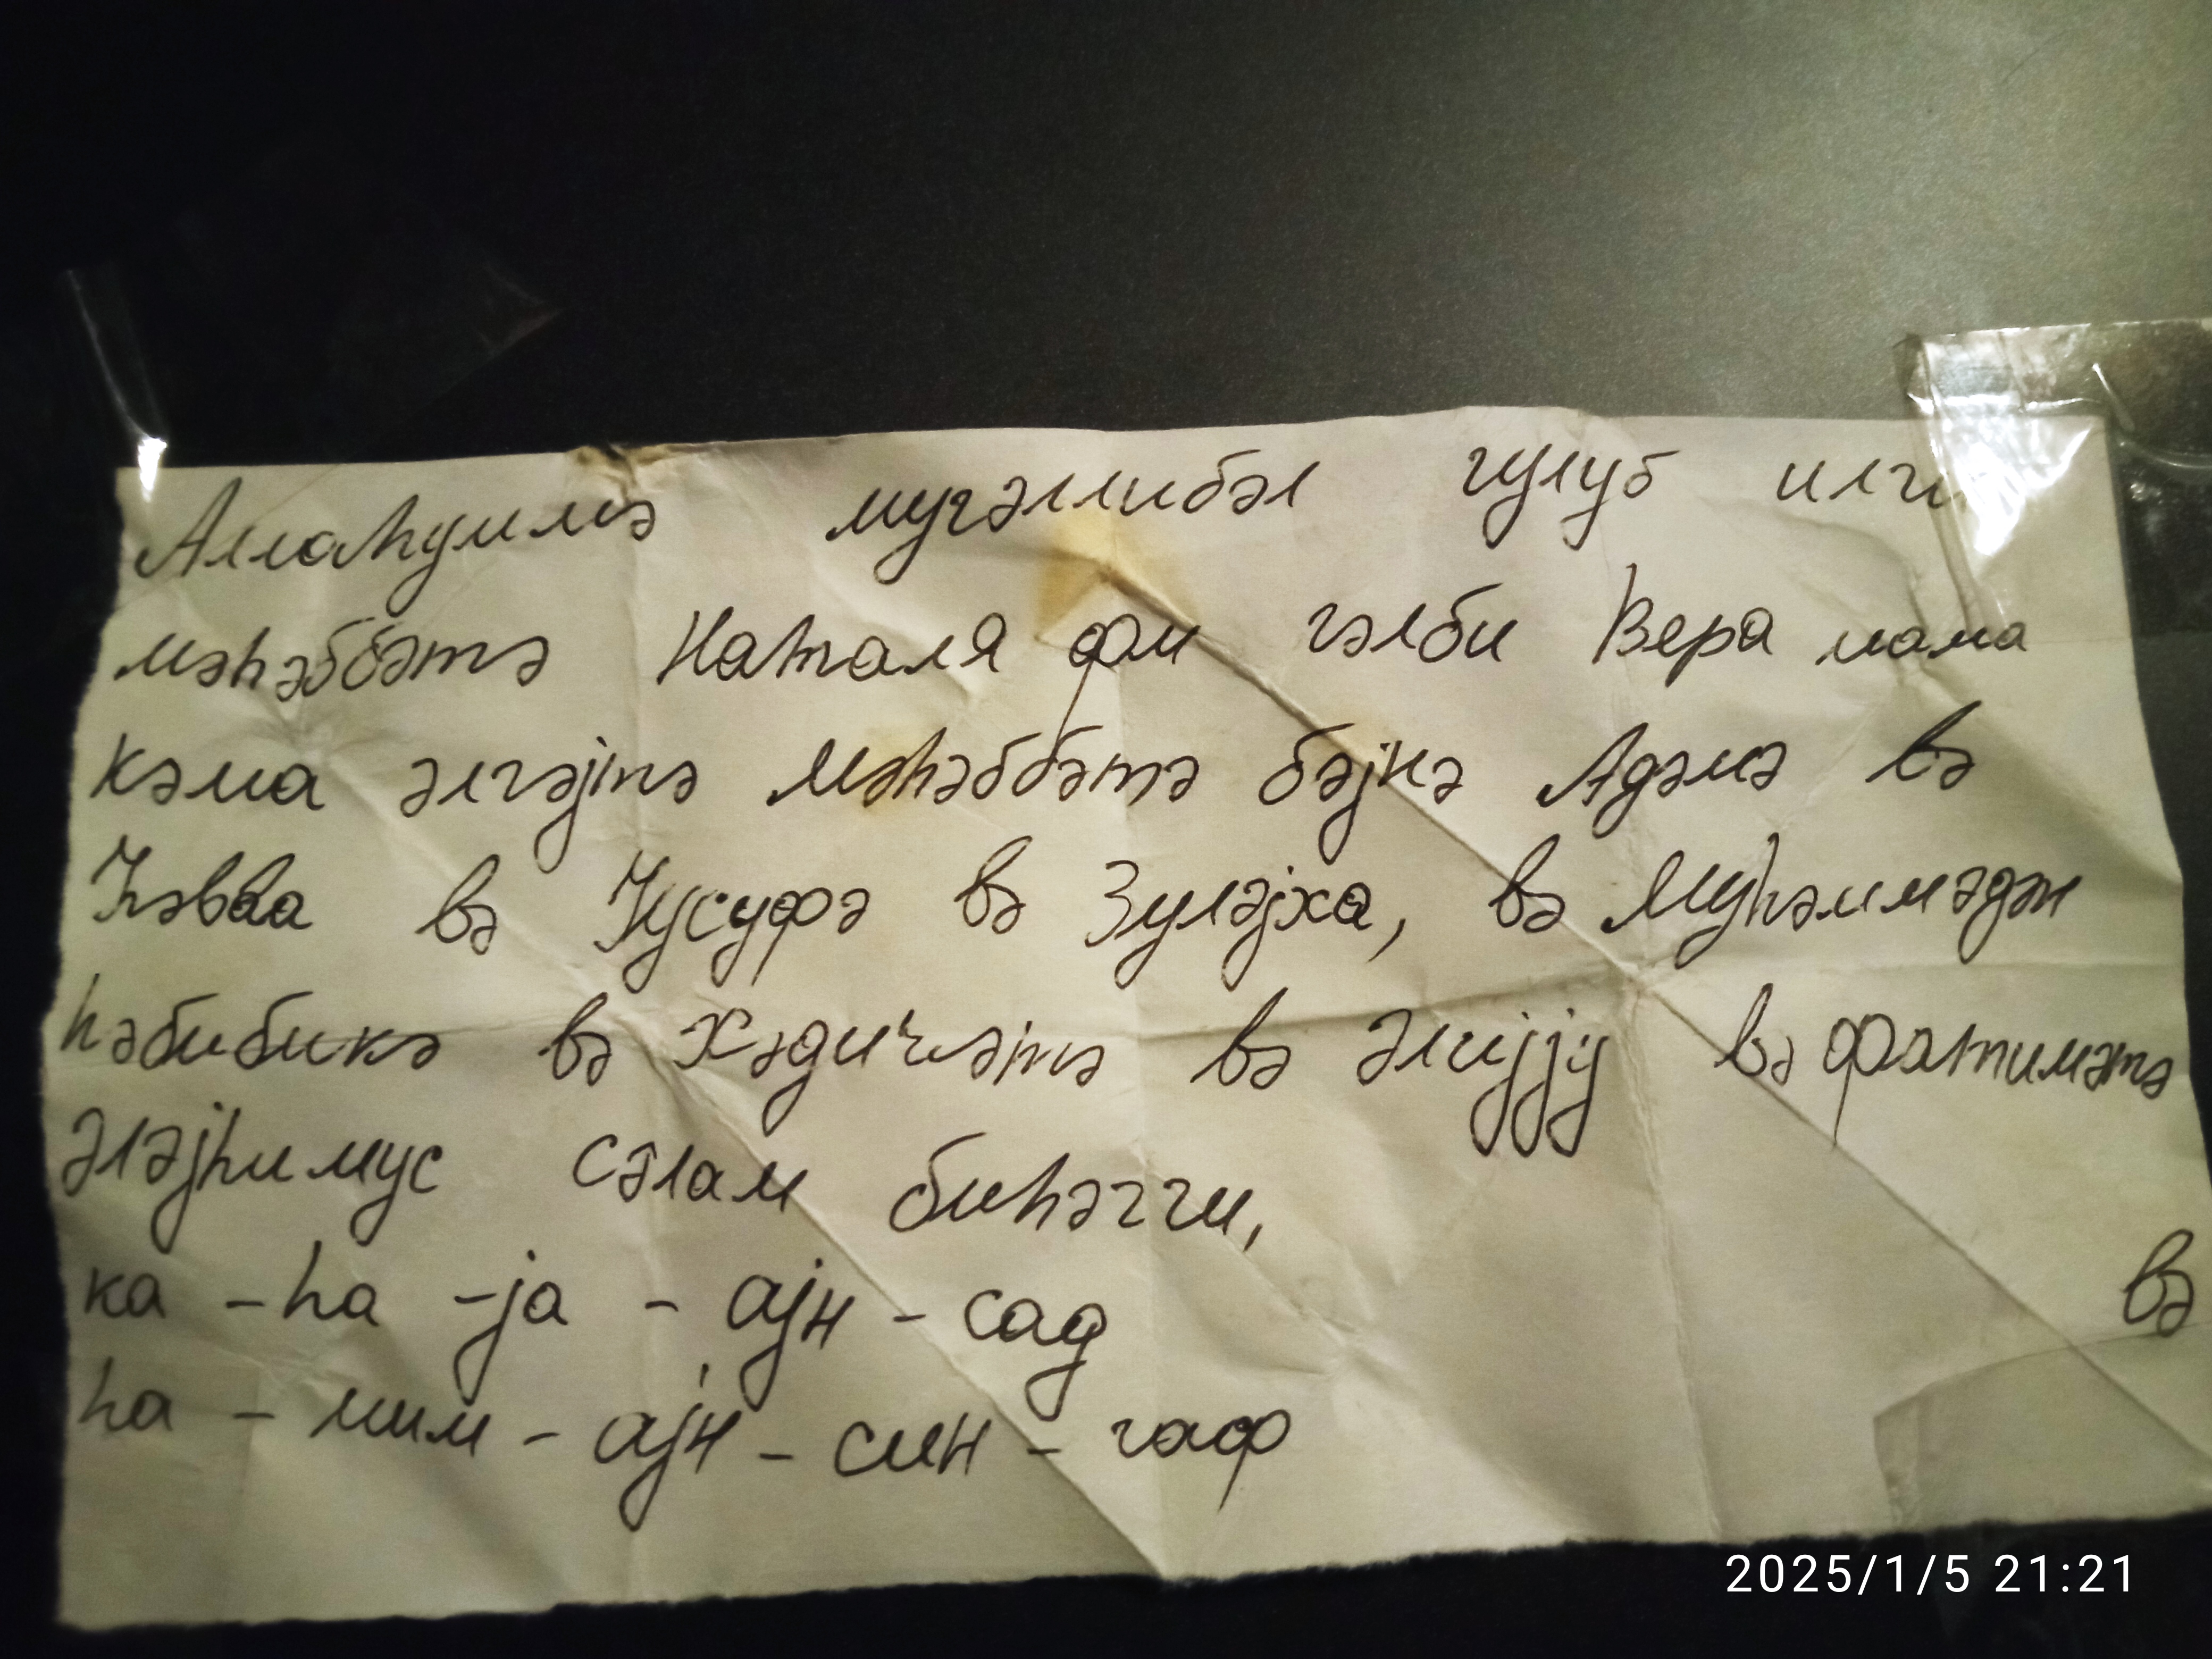 Аллаһумма мугәллибәл гулуб илги
мәһәббәтә Наталя фи гәлби Вера мама
кәма әлгәјтә мәһәббәтә бәјнә Адәмә вә
Һәвва вә Јусуфә вә Зуләјха, вә Муһәммәдән
һәбибикә вә Хәдиҹәтә вә Әлијју вә Фатимәтә
әләјһимус сәлам биһәгги,
ка - һа - ја - ајн - сад вә
һа - мим - ајн - син - гаф
2025/1/5 21:21